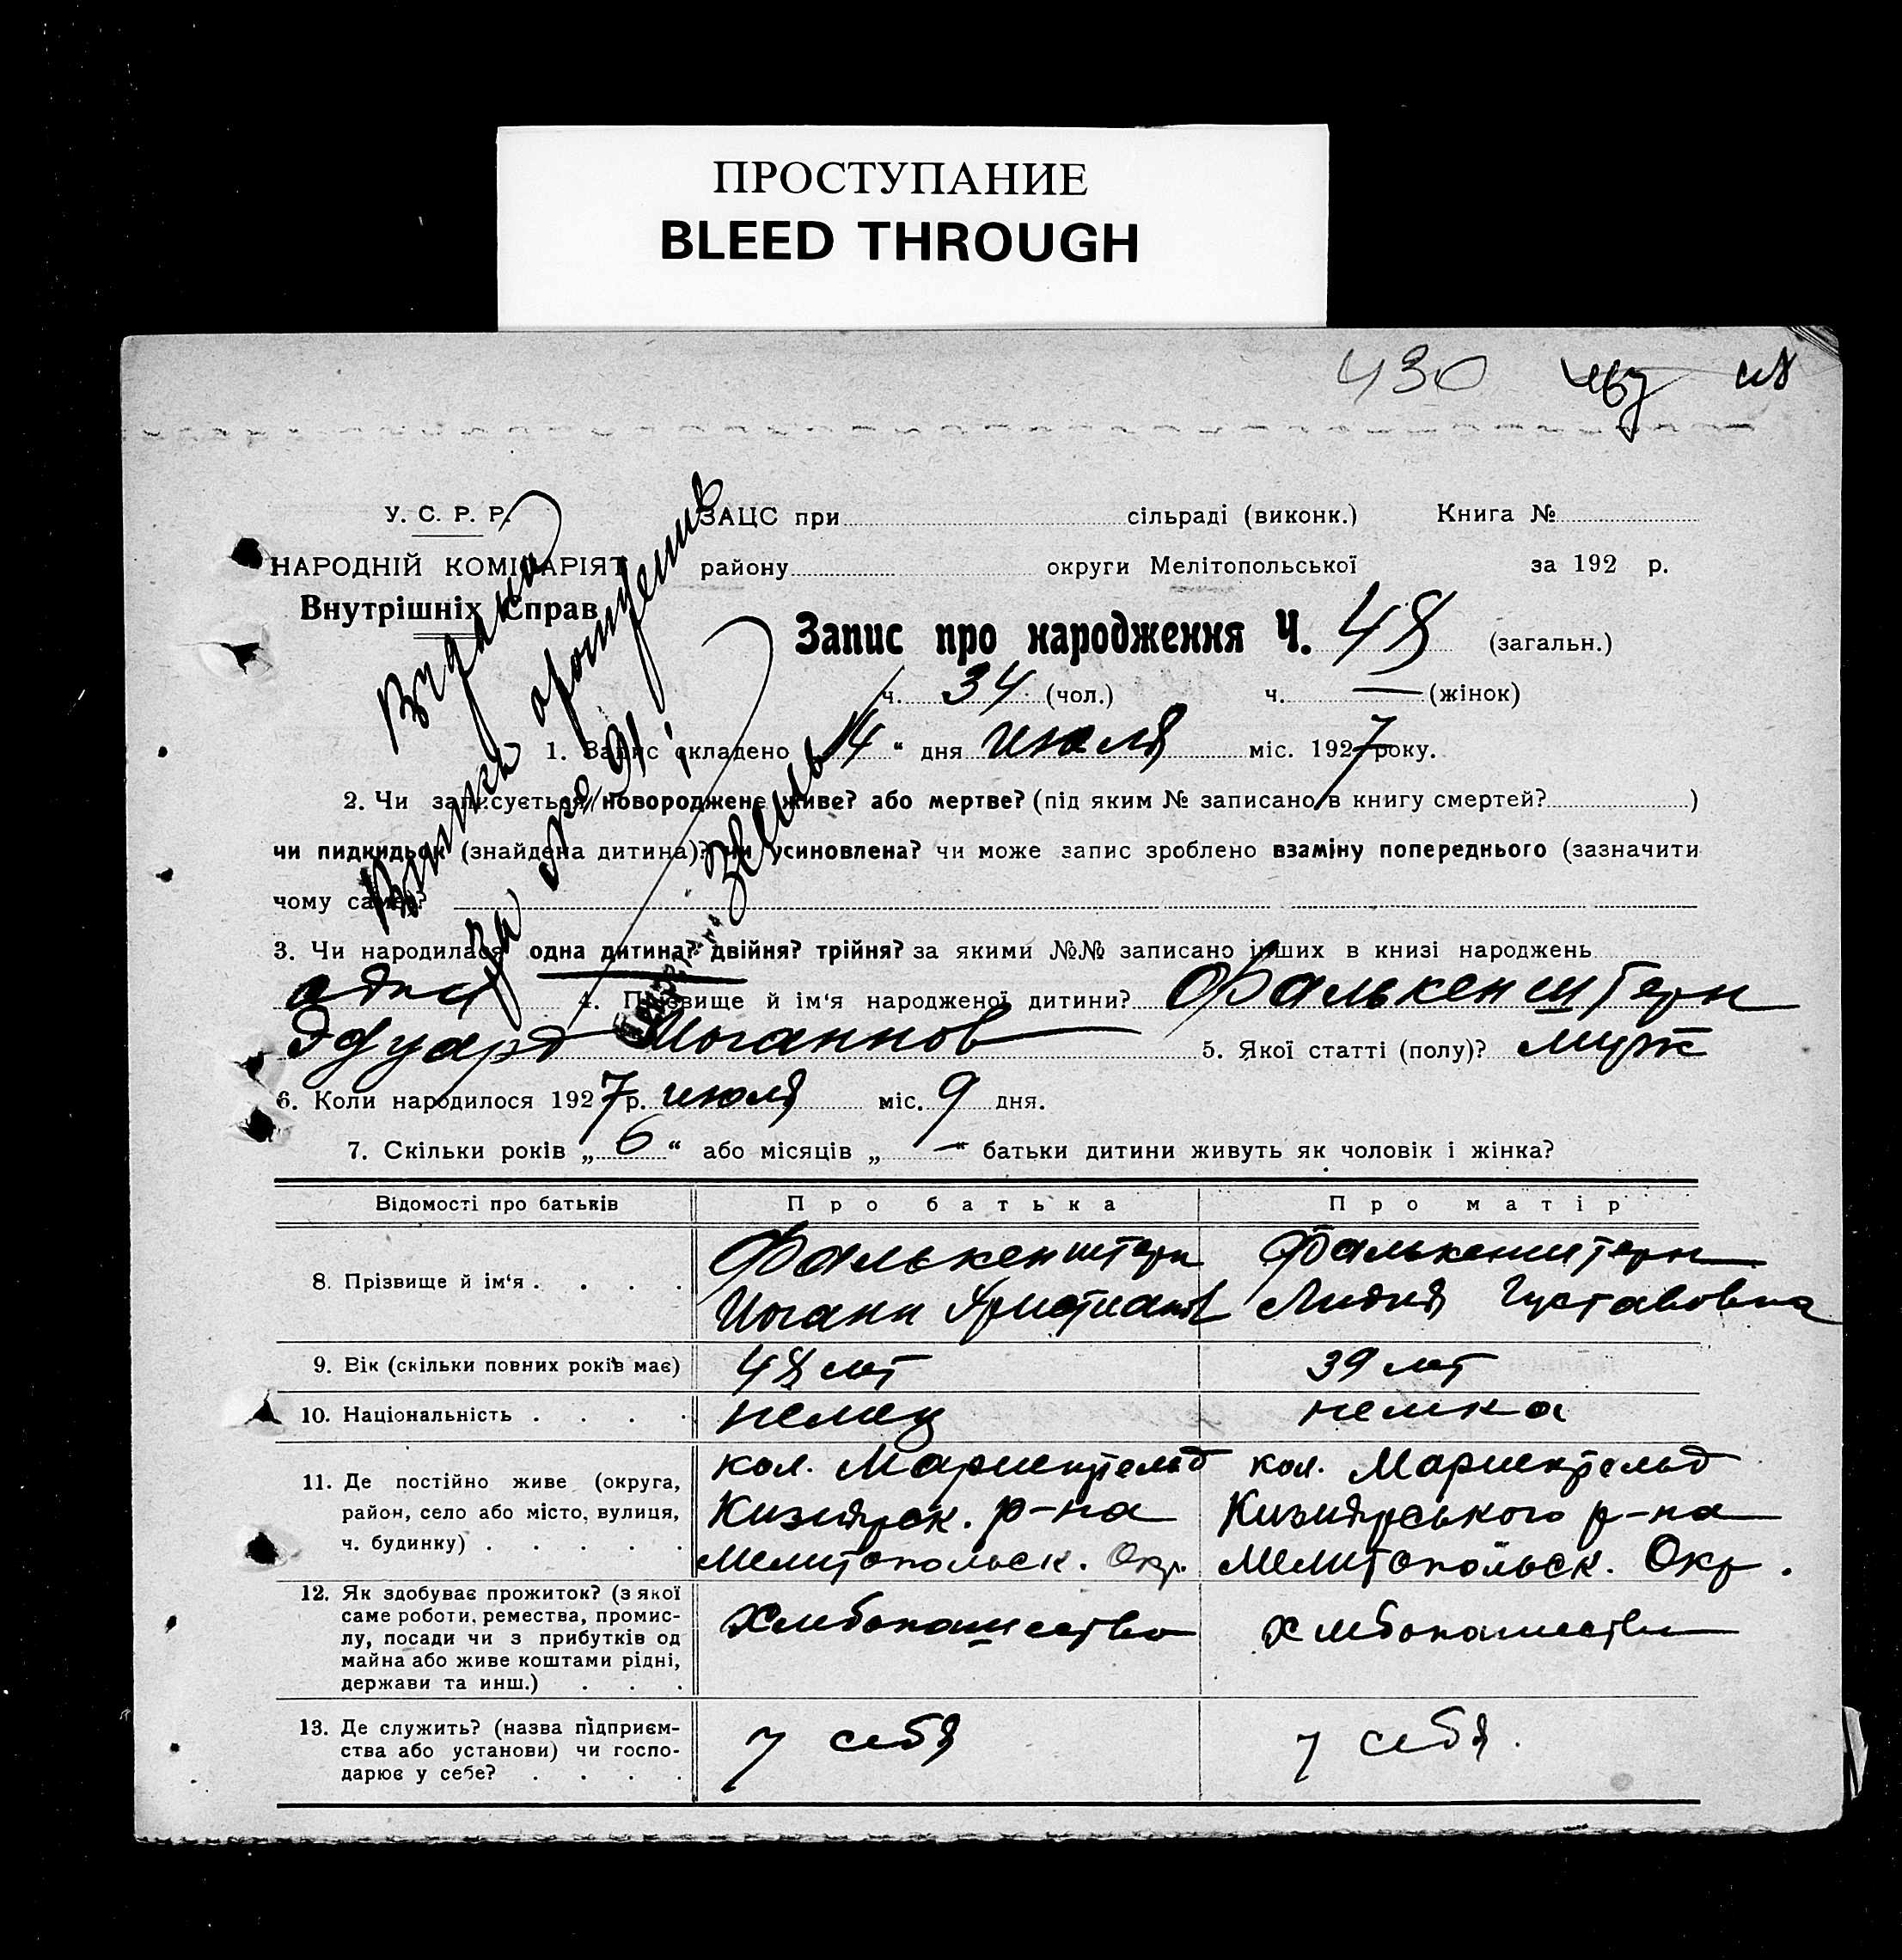 ПРОСТУПАНИЕ
BLEED THROUGH
430
У. С. Р. Р.
НАРОДНІЙ КОМІСАРІЯТ
Внутрішніх Справ
ЗАЦС при сільраді (виконк.) Книга №
району округи Мелітопольської за 192 р.
Запис про народження Ч. 48 (загальн.)
ч. 34 (чол.) ч. — (жінок)
Видано
1. Запис складено 14 “ дня июля міс. 1927 року.
2. Чи записується новороджене живе? або мертве? (під яким № записано в книгу смертей? )
чи пидкидьок (знайдена дитина)? чи усиновлена? чи може запис зроблено взаміну попереднього (зазначити
чому саме)?
3. Чи народилася одна дитина? двійня? трійня? за якими №№ записано інших в книзі народжень
4. Прізвище й ім‘я народженої дитини? Фалькенштерн
Эдуард Иоганнов 5. Якої статті (полу)? муж
6. Коли народилося 1927 р. июля міс. 9 дня.
7. Скільки років „ 6 “ або місяців „ — “ батьки дитини живуть як чоловік і жінка?
Відомості про батьків Про батька Про матір
8. Прізвище й ім‘я . . . . Фалькенштерн Фалькенштерн
Иоганн Христианов Лидия Густавовна
9. Вік (скільки повних років має) 48 лет 39 лет
10. Національність . . . . немец немка
11. Де постійно живе (округа, кол. Мариенфельд кол. Мариенфельд
район, село або місто, вулиця, Кизиярск. р-на Кизиярського р-на
ч. будинку) . . . . . Мелитопольск. Окр. Мелитопольск. Окр.
12. Як здобуває прожиток? (з якої
саме роботи, ремества, промис-
лу, посади чи з прибутків од Хлебопашество Хлебопашество
майна або живе коштами рідні,
держави та инш.) . . .
13. Де служить? (назва підприєм-
ства або установи) чи госпо- у себя у себя.
дарює у себе? . . . .